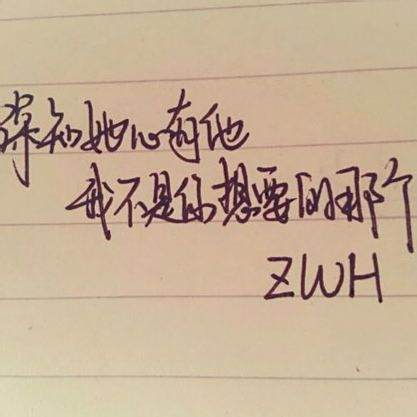 深知她心有他
我不是你想要的那个
ZWH